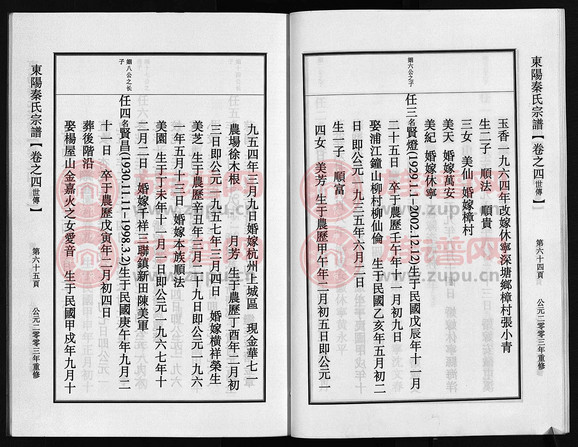 玉香一九六四年改嫁休寧深塘鄉樟村張小青
生二子 順法 順貴
三女 美仙 婚嫁樟村
美天 婚嫁萬安
美紀 婚嫁休寧
順六公之子
任三名賢燈(1929.11.1-2002.12.12)生于民國戊辰年十一月
二十五日 卒于農歷壬午年十一月初九日
娶浦江鐘山柳村柳仙倫 生于民國乙亥年五月初
日即公元一九三五年六月二日
生二子 順富
四女 美芳 生于農歷甲午年二月初五日即公元一
東陽秦氏宗譜【卷之四世傳】
第六十四頁
公元二零零三年重修
九五四年三月九日婚嫁杭州上城區 現金華七一
農場徐木根 月芳 生于農歷丁酉年二月初
三日即公元一九五七年三月四日 婚嫁橫祥榮生
美芝 生于農歷辛丑年三月二十九日即公元一九六
一年五月十三日 婚嫁本族順法
美園 生于丁未年十一月一日即公元一九六七年十
二月二日 婚嫁千祥三聯鎮新田陳美軍
順八公之長子
任四名賢昌(1930.11.11-1998.3.2)生于民國庚午年九月二
十一日 卒于農歷戊寅年二月初四日
葬後階沿
娶楊屋山金嘉火之女愛音 生于民國甲戌年九月十
東陽秦氏宗譜【卷之四世傳】
第六十五頁
公元二零零三年重修
族譜网
www.zupu.cn
族譜网
www.zupu.cn